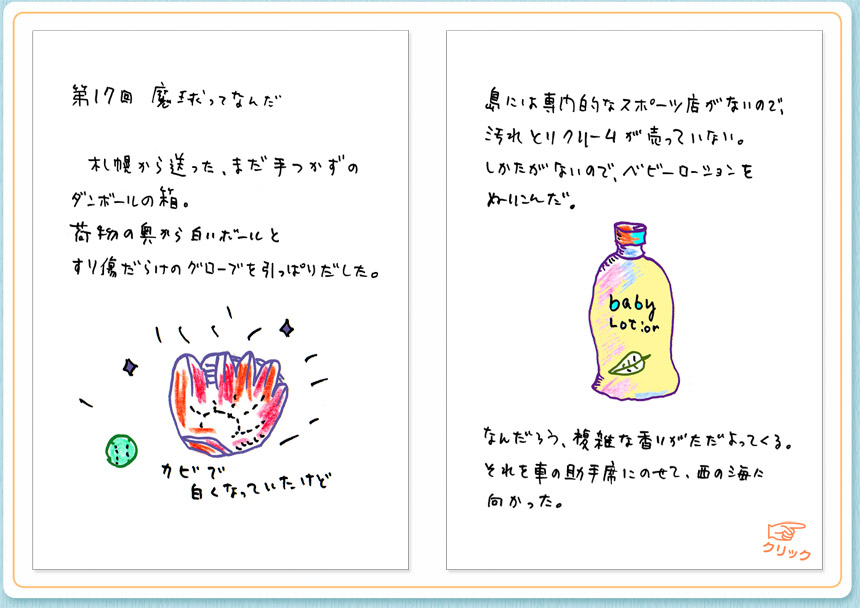 第17回 魔球ってなんだ
札幌から送った、まだ手つかずの
ダンボールの箱。
荷物の奥から白いボールと
すり傷だらけのグローブを引っぱりだした。
カビで
白くなっていたけど
島には専門的なスポーツ店がないので、
汚れとりクリームが売っていない。
しかたがないので、ベビーローションを
ぬりこんだ。
baby
Lotion
なんだろう、複雑な香りがただよってくる。
それを車の助手席にのせて、西の海に
向かった。
クリック